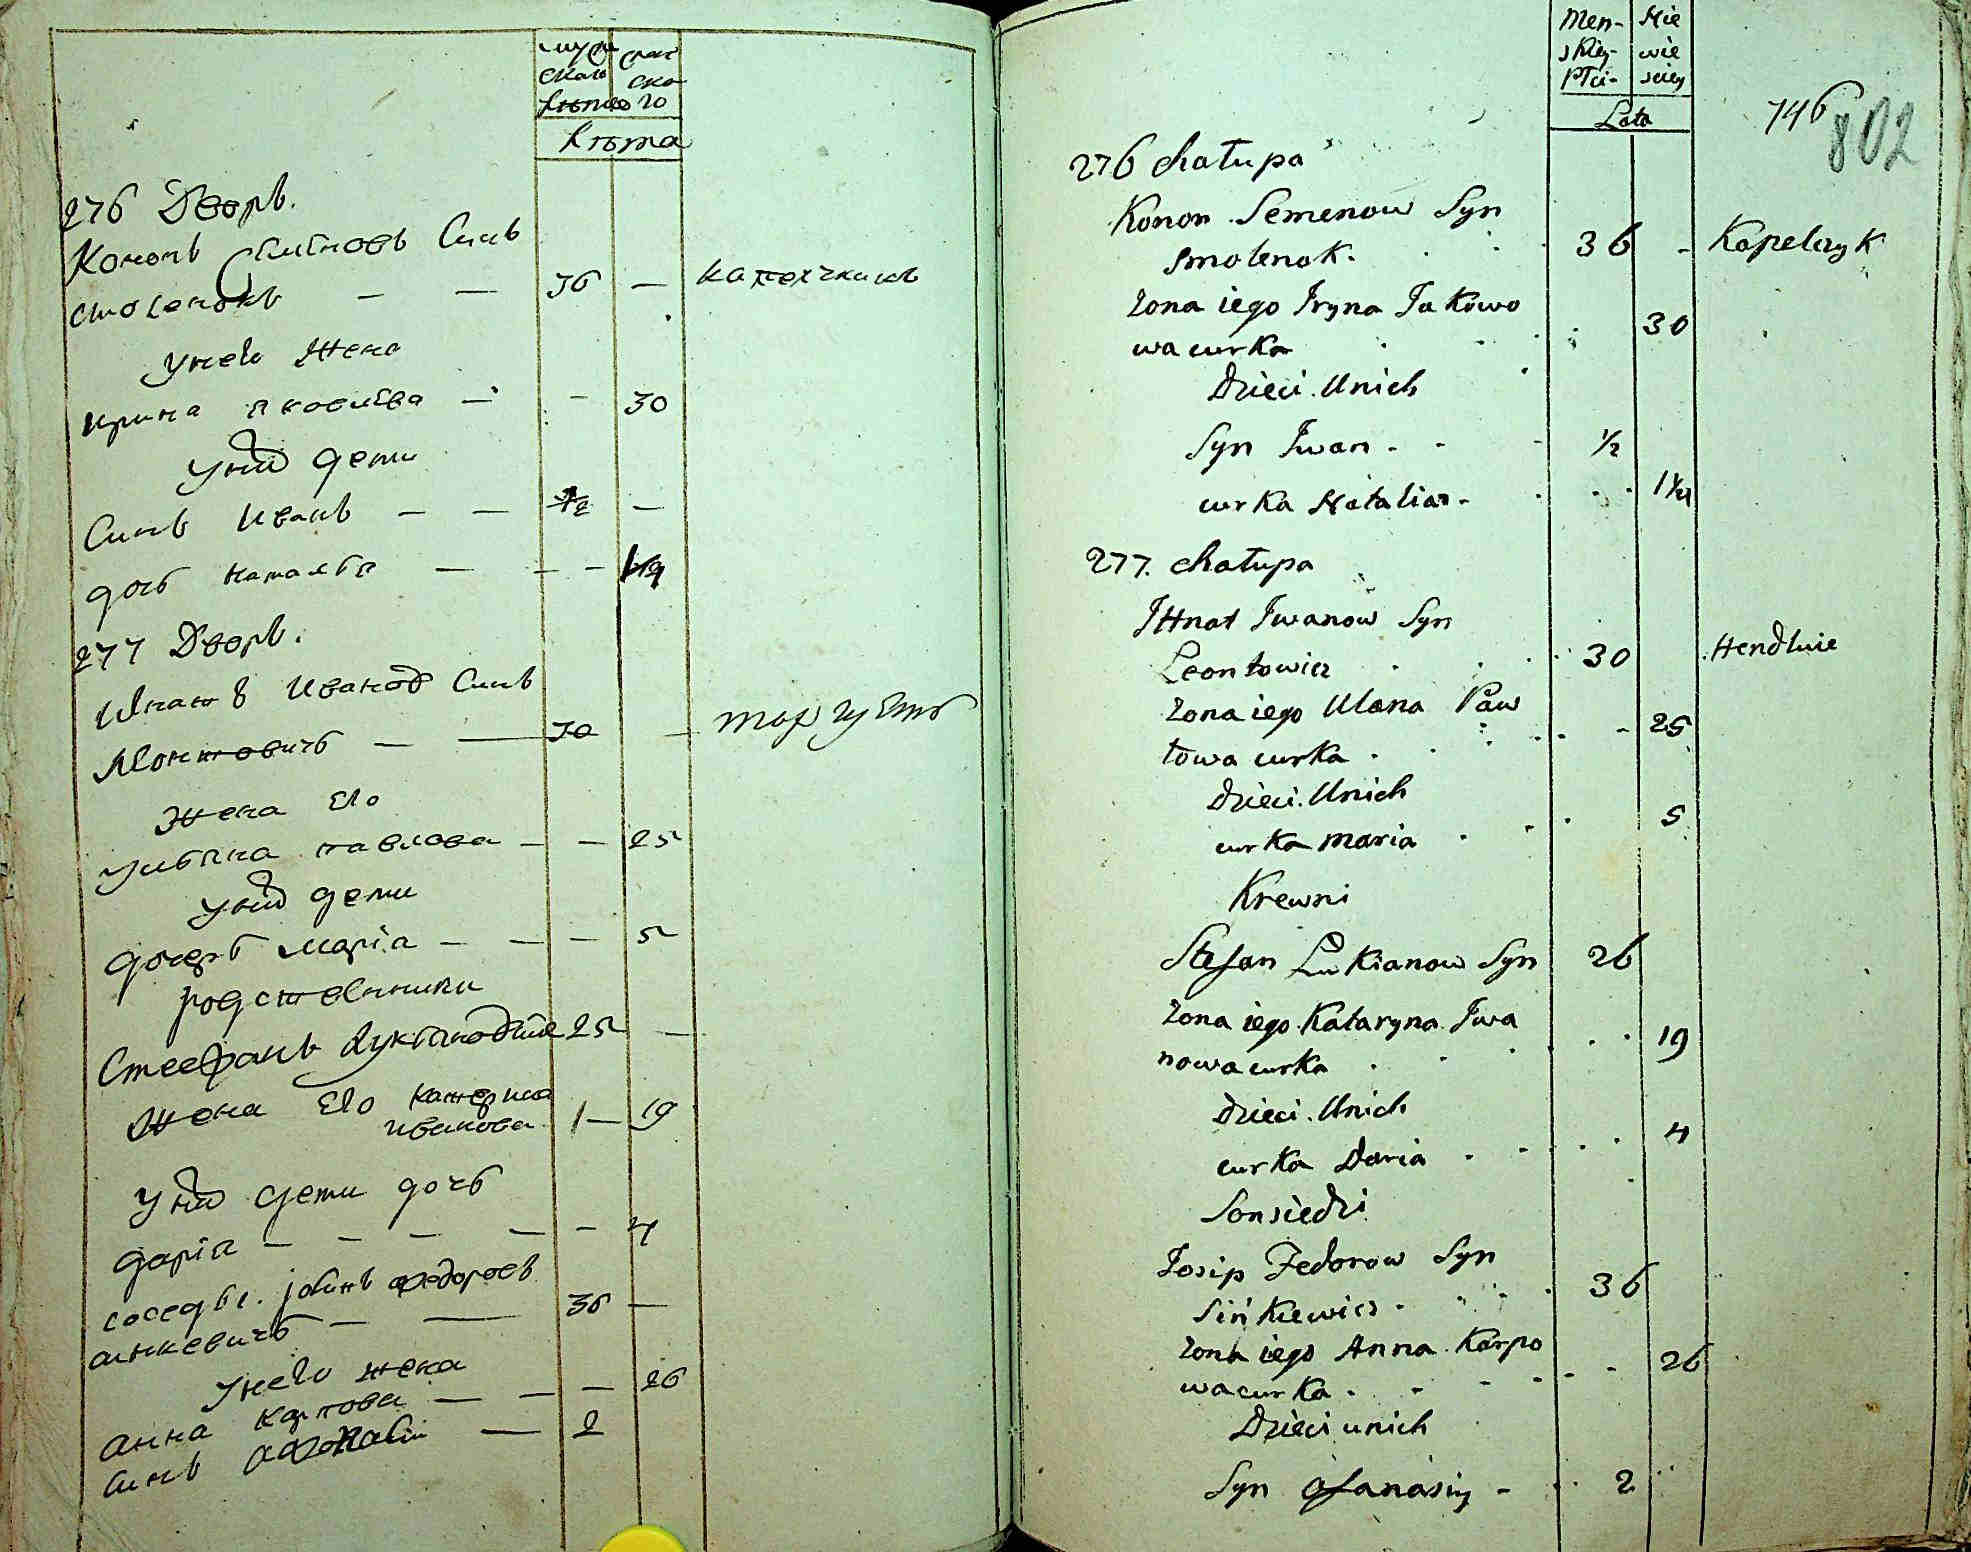 муж
ского
женс
ско
го
лѣта
276 Дворъ.
Кононъ Семеновъ Синъ
смоленокъ — — 36 —
капелчникъ
унего Жена
ирина яковлева — - 30
уних дети
Синъ Иванъ — — 1/2 —
дочь наталья — — - 1 1/4
277 Дворъ.
Игнатъ Иванов Синъ
Леонтовичъ — — 30 —
торгуетъ
Жена Его
ульяна павлова — — 25
уних дети
дочерь Марiа — — — 5
родственники
Стефанъ Лукянов 25 —
Жена Его катерина
иванова — 19
уних дети дочь
дарiя — — — — — 4
соседы. федоров
синкевичъ — — 36 —
унего жена
анна карпова — — — 26
Синъ афонасiи — 2
Men-
skiey
Płci-
Nie
wie
sciey
Lata
746
802
276 chałupa
Konon Semenow Syn
Smolenok. 36 - Kapelczyk
Żona iego Iryna Jakowo
wa curka 30
Dzieci Unich
Syn Iwan - - - 1/2
curka Natalia - 1 1/4
277. chałupa
IHnat Iwanow Syn
Leontowicz 30 Hendluie
Żona iego Ulana Paw
łowa curka 25
Dzieci Unich
curka Maria 5
Krewni
Stefan Lukianow Syn 26
Żona iego Kataryna Iwa
nowa curka 19
Dzieci Unich
curka Daria 4
Sonsiedzi
Josip Fedorow Syn
Sińkiewicz - 36
Żona iego Anna Karpo
wa curka - 26
Dzieci unich
Syn Afanasiy - 2